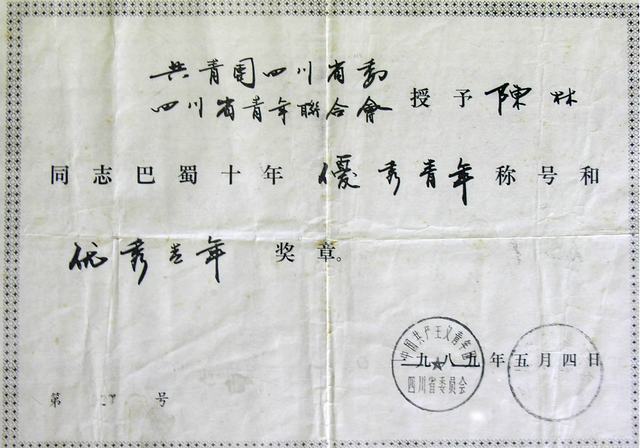 共青团四川省委
四川省青年聯合會 授予 陳林
同志巴蜀十年 優秀青年 称号和
优秀青年 奖章。
中国共产主义青年团
四川省委员会
一九八九年五月四日
第 号